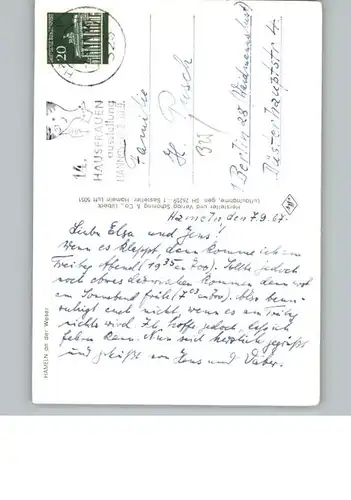 20
14.
HAUSFRAUEN
ausstellung
Familie
H. Pusch
1 Berlin 28 (Waidmannslust)
Düsterhauptstr. 4
Hersteller und Verlag Schöning & Co., Lübeck
Luftaufnahme, freigeg. SH
HAMELN an der Weser
Hameln, den 7.9.67.
Liebe Elsa und Jens!
Wenn es klappt, dann komme ich am
Freitag Abend (19 35 an Zoo). Sollte jedoch
noch etwas dazwischen kommen, dann
am Sonnabend früh (7 03 an Zoo). Also beun-
ruhigt euch nicht, wenn es am Freitag
nichts wird. Ich hoffe jedoch, daß ich
fahren kann. Nun seid herzlich gegrüßt
und geküßt von Jens und Vater.